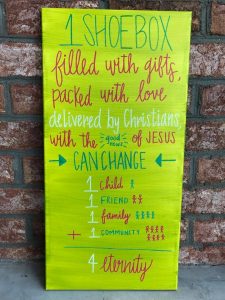 1 SHOEBOX
filled with gifts,
packed with love
delivered by Christians,
with the good news of JESUS
CAN CHANGE
1 child
1 FRIEND
1 family
+ 1 COMMUNITY
4 eternity